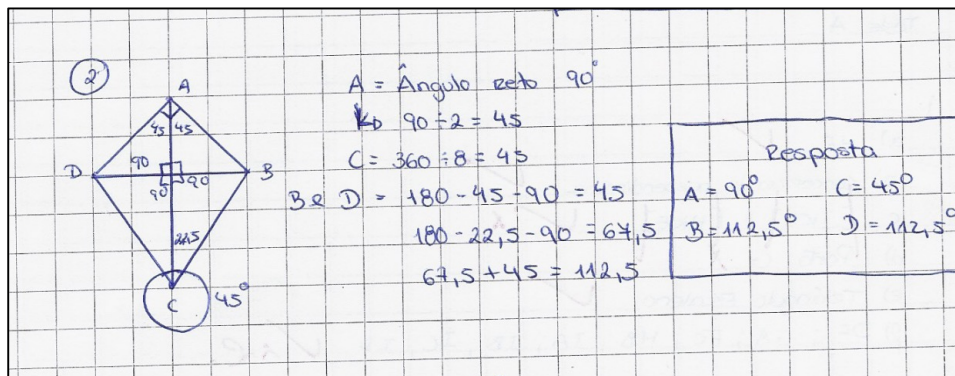 2
A
45 45
90
D
B
90 90
22,5
C
45°
A = Ângulo reto 90°
↳ 90 ÷ 2 = 45
C = 360 ÷ 8 = 45
B e D = 180 - 45 - 90 = 45
180 - 22,5 - 90 = 67,5
67,5 + 45 = 112,5
Resposta
A = 90° C = 45°
B = 112,5° D = 112,5°